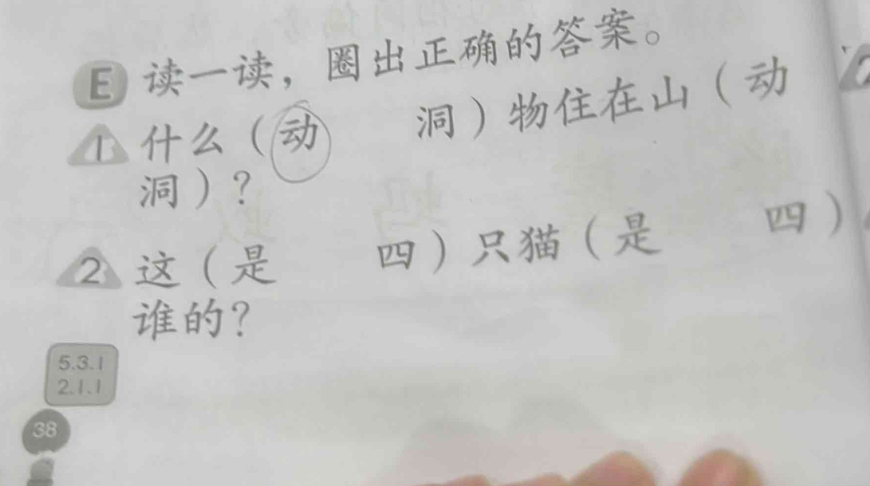 E 读一读，圈出正确的答案。
1 什么（动 洞）物住在山（动
洞）？
2 这（是 四）只猫（是 四）
谁的？
5.3.1
2.1.1
38